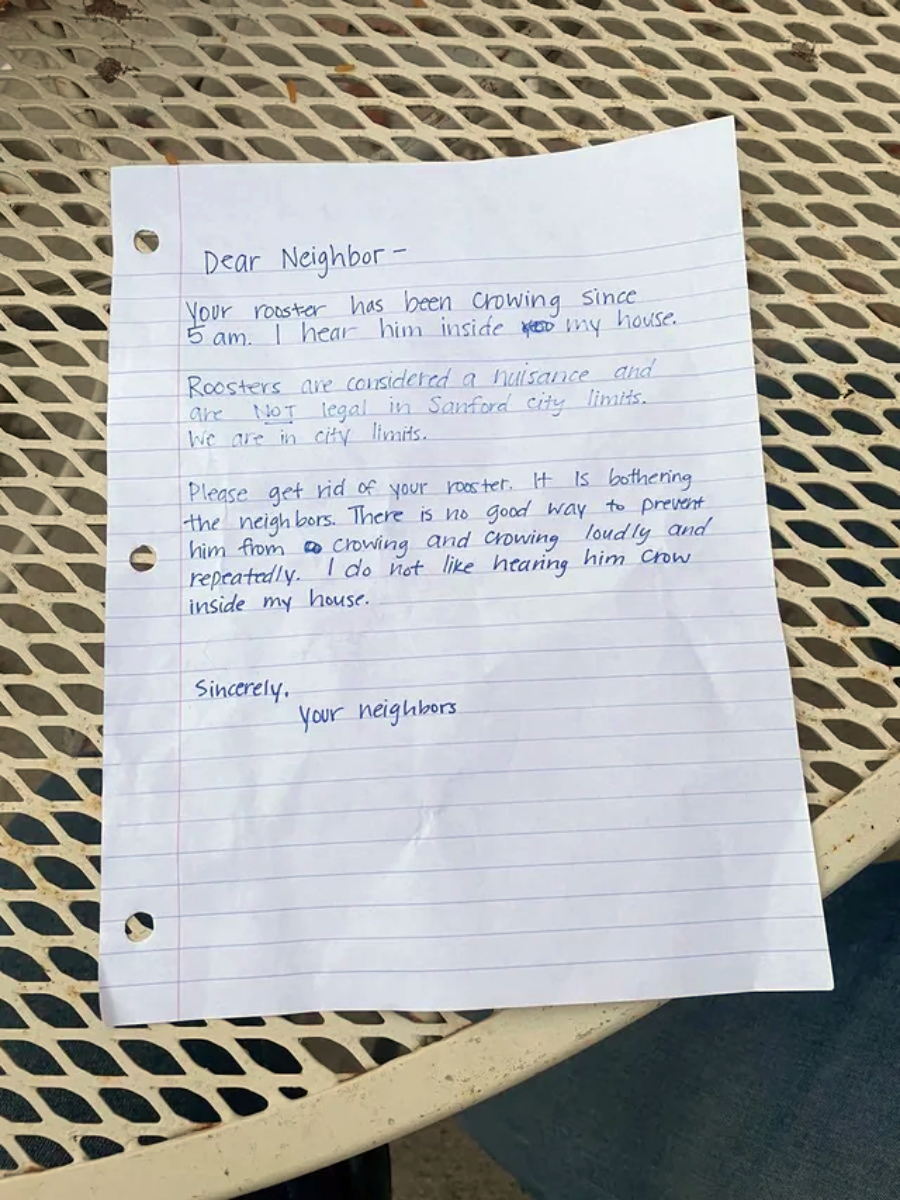 Dear Neighbor-
Your rooster has been crowing since
5 am. I hear him inside my house.
Roosters are considered a nuisance and
are NOT legal in Sanford city limits.
We are in city limits.
Please get rid of your rooster. It is bothering
the neighbors. There is no good way to prevent
him from crowing and crowing loudly and
repeatedly. I do not like hearing him crow
inside my house.
Sincerely,
your neighbors